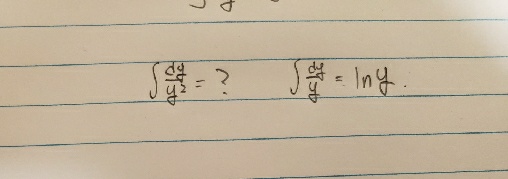 ∫ dy/y² = ? ∫ dy/y = ln y.